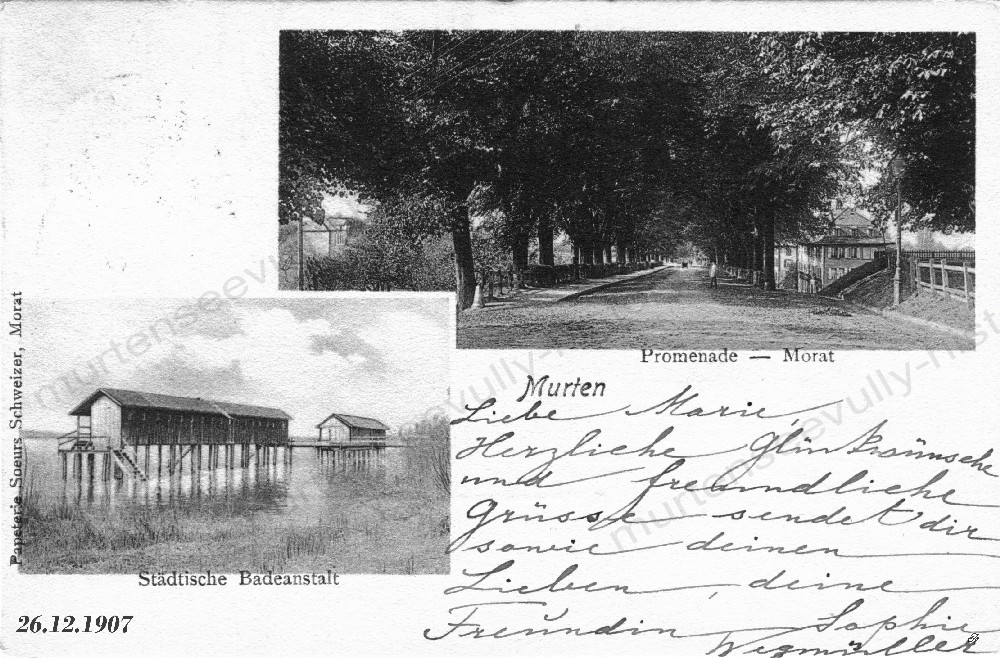 Promenade — Morat
Papeterie Soeurs Schweizer, Morat
Städtische Badeanstalt
26.12.1907
Murten
Liebe Marie,
Herzliche Glückwünsche
und freundliche
Grüsse sendet dir
sowie deinen
Lieben, deine
Freundin Sophie
Wegmüller